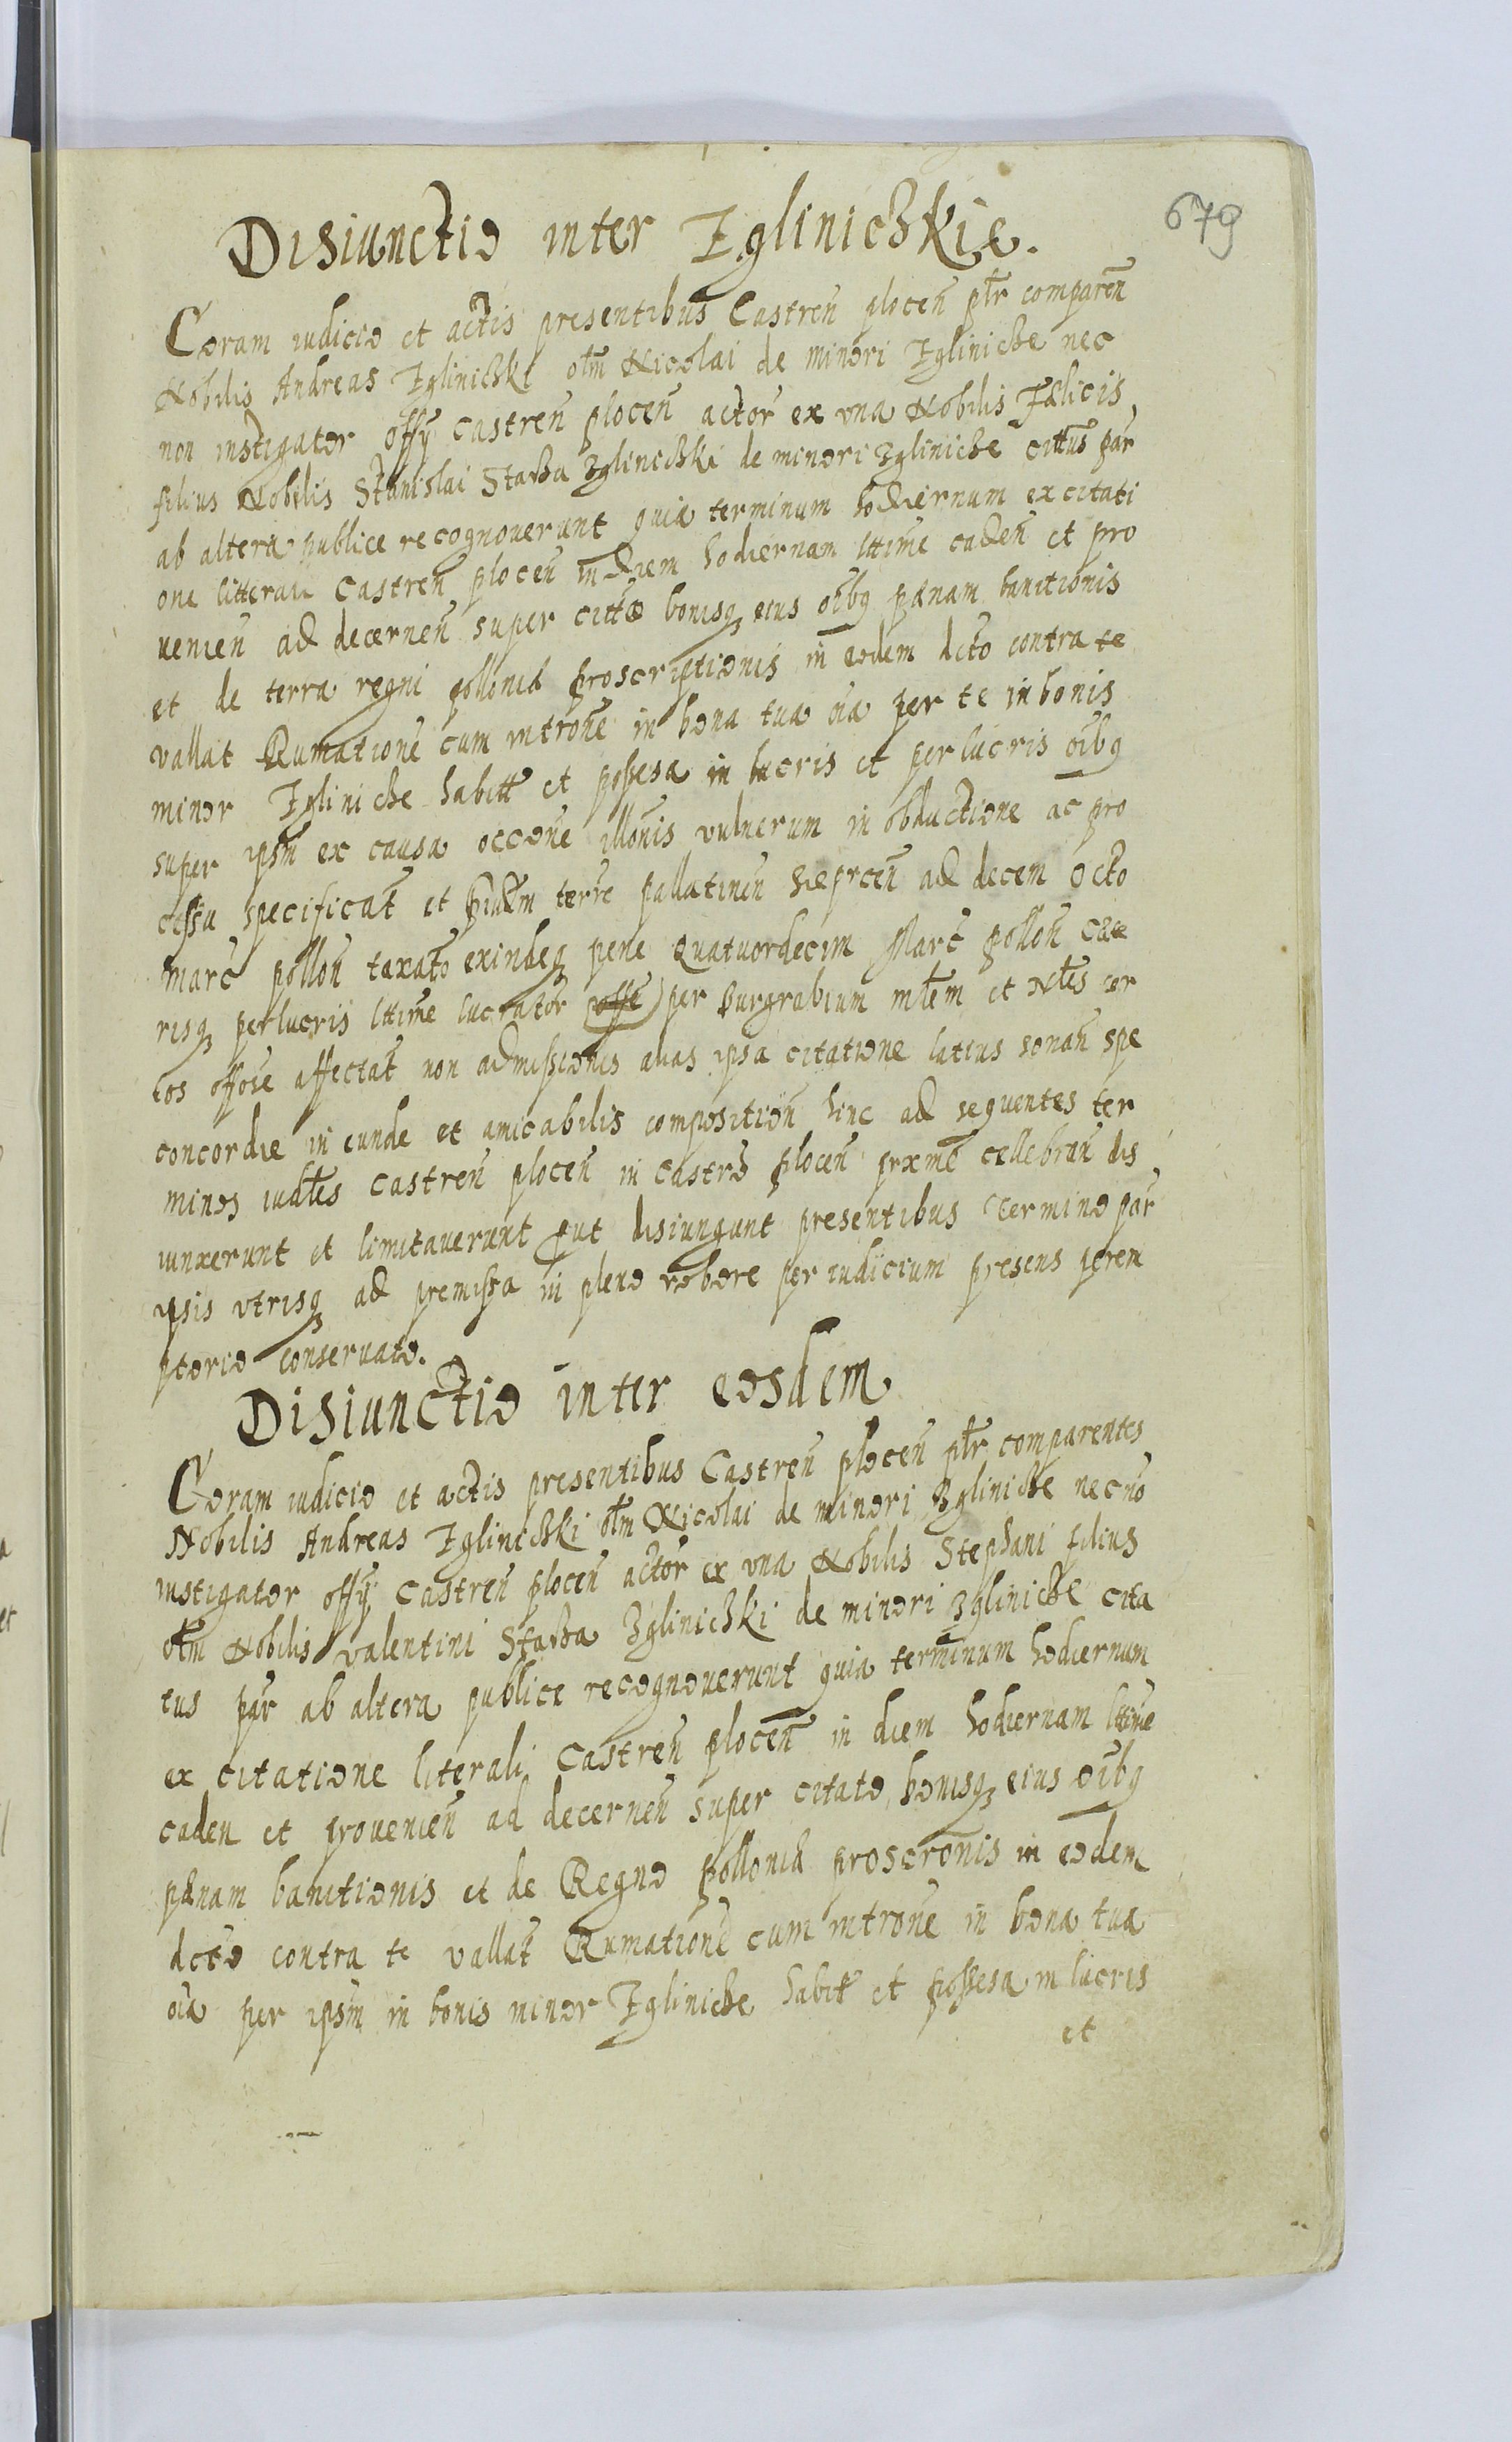 679
Disiunctio inter Zglinichkie.
Coram iudicio et actis presentibus Castren̄ plocen̄ ptr̄ comparen̄
Nobilis Andreas Zglinichki otm̄ Nicolai de minori Zgliniche nec
non instigator offÿ castren̄ plocen̄ actor ex vna Nobilis Fælicis
filius Nobilis Stanislai Starha Zglinichki de minori Zgliniche cittus par
ab altera publice recognouerunt quia terminum hodiernum ex citati
one litterali Castren̄ plocen̄ in diem hodiernam lttime caden̄ et pro
uenien̄ ad decernen̄ super citto bonisq eius oībq pænam banitionis
et de terra regni pollonia proscriptionis in eodem dcto contra te
vallat Rumatione cum intrōne in bona tua oīa per te in bonis
minor Zgliniche habitt et possesa in lucris et perlucris oībq
super ipsm̄ ex causa occōne illōnis vulnerum in obductione ac pro
cessu specificat̄ et eiudem terrē pallatinen̄ hic prcen̄ ad decem octo
marc̄ pollon̄ taxato exindeq pene quatuordecim Marc̄ pollon̄ cæte
risq perlucris lttime lucrator per burgrabium mltem et Nles er
eos offōse affectat̄ non admissionis alias ipsa citatione latius sonan̄ spe
concordie in eunde et amicabilis composition̄ hinc ad sequentes ter
minos iudles castren̄ plocen̄ in castro plocen̄ prxme cellebran̄ dis
iunxerunt et limitauerunt put disiungunt presentibus Termino par
ipsis vtrisq ad premissa in pleno robore per iudicium presens perem
ptorio conseruato.
Disiunctio inter eosdem
Coram iudicio et actis presentibus Castren̄ plocen̄ ptr̄ comparentes
Nobilis Andreas Zglinichki otm̄ Nicolai de minori Zgliniche necno
instigator offÿ castren̄ plocen̄ actor ex vna Nobilis Stephani filius
otm̄ Nobilis valentini Starha Zglinichki de minori Zgliniche cita
tus par ab altera publice recognouerunt quia terminum hodiernum
ex citatione literali Castren̄ plocen̄ in diem hodiernam lttime
caden et prouenien̄ ad decernen̄ super citato bonisq eius oībq
pænam banitionis et de Regno pollonia proscrōnis in eodem
dcto contra te vallat̄ Rumatione cum intrōne in bona tua
oīa per ipsm̄ in bonis minor Zgliniche habitt et possesa in lucris
et